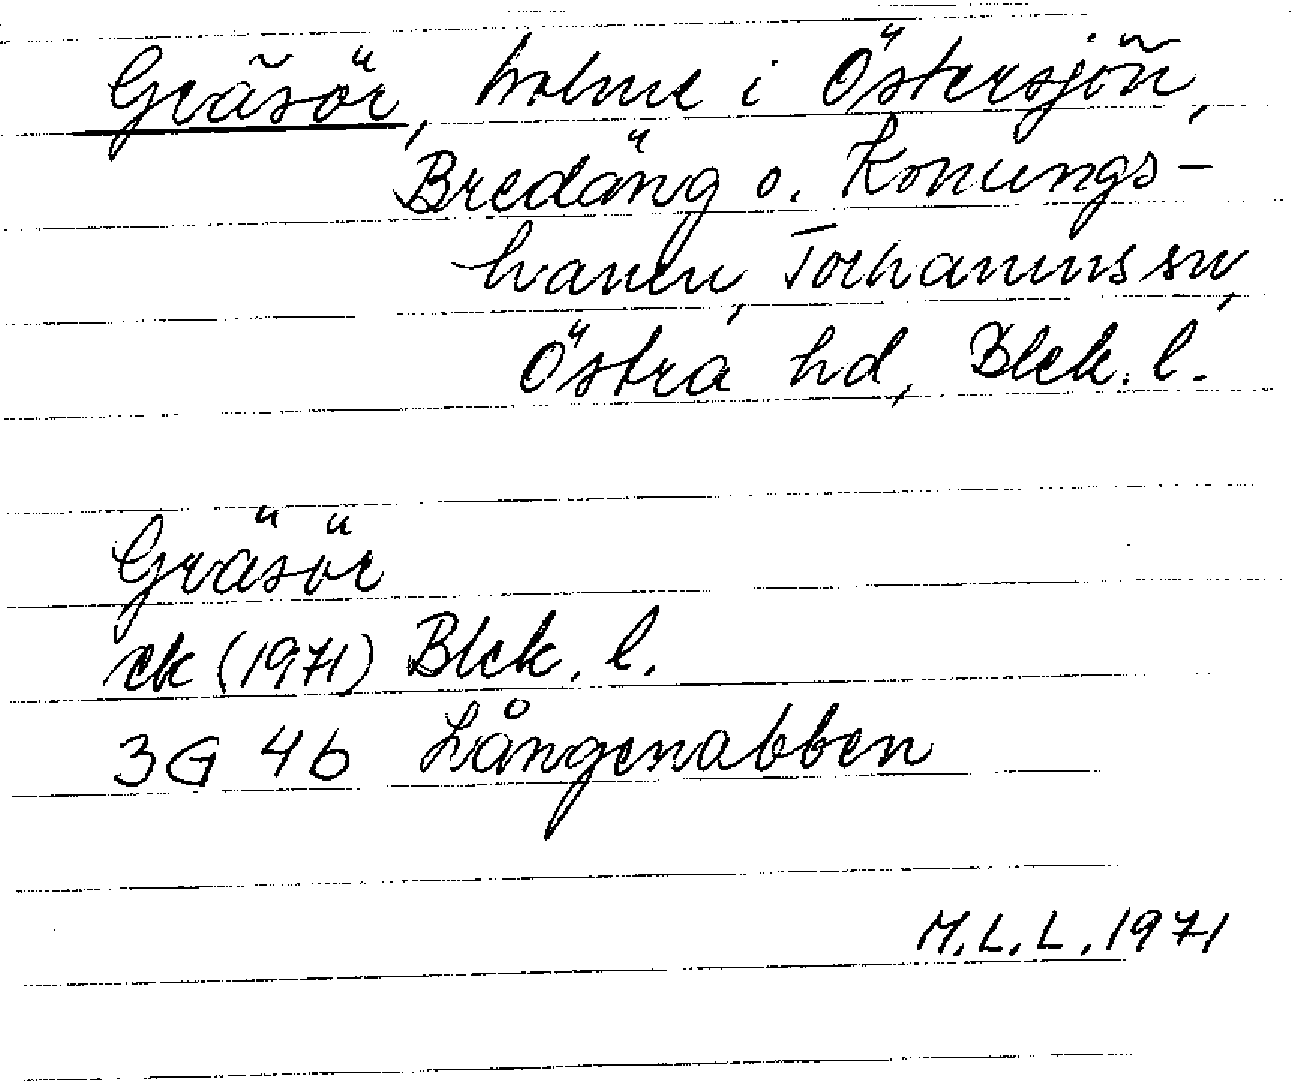 Gräsör, holme i Östersjön,
Bredäng o. Konungs-
hamn, Torhamns sn,
Östra hd, Blek. l.
Gräsör
ek (1971) Blek. l.
3G 4b Långenabben
M.L.L. 1971